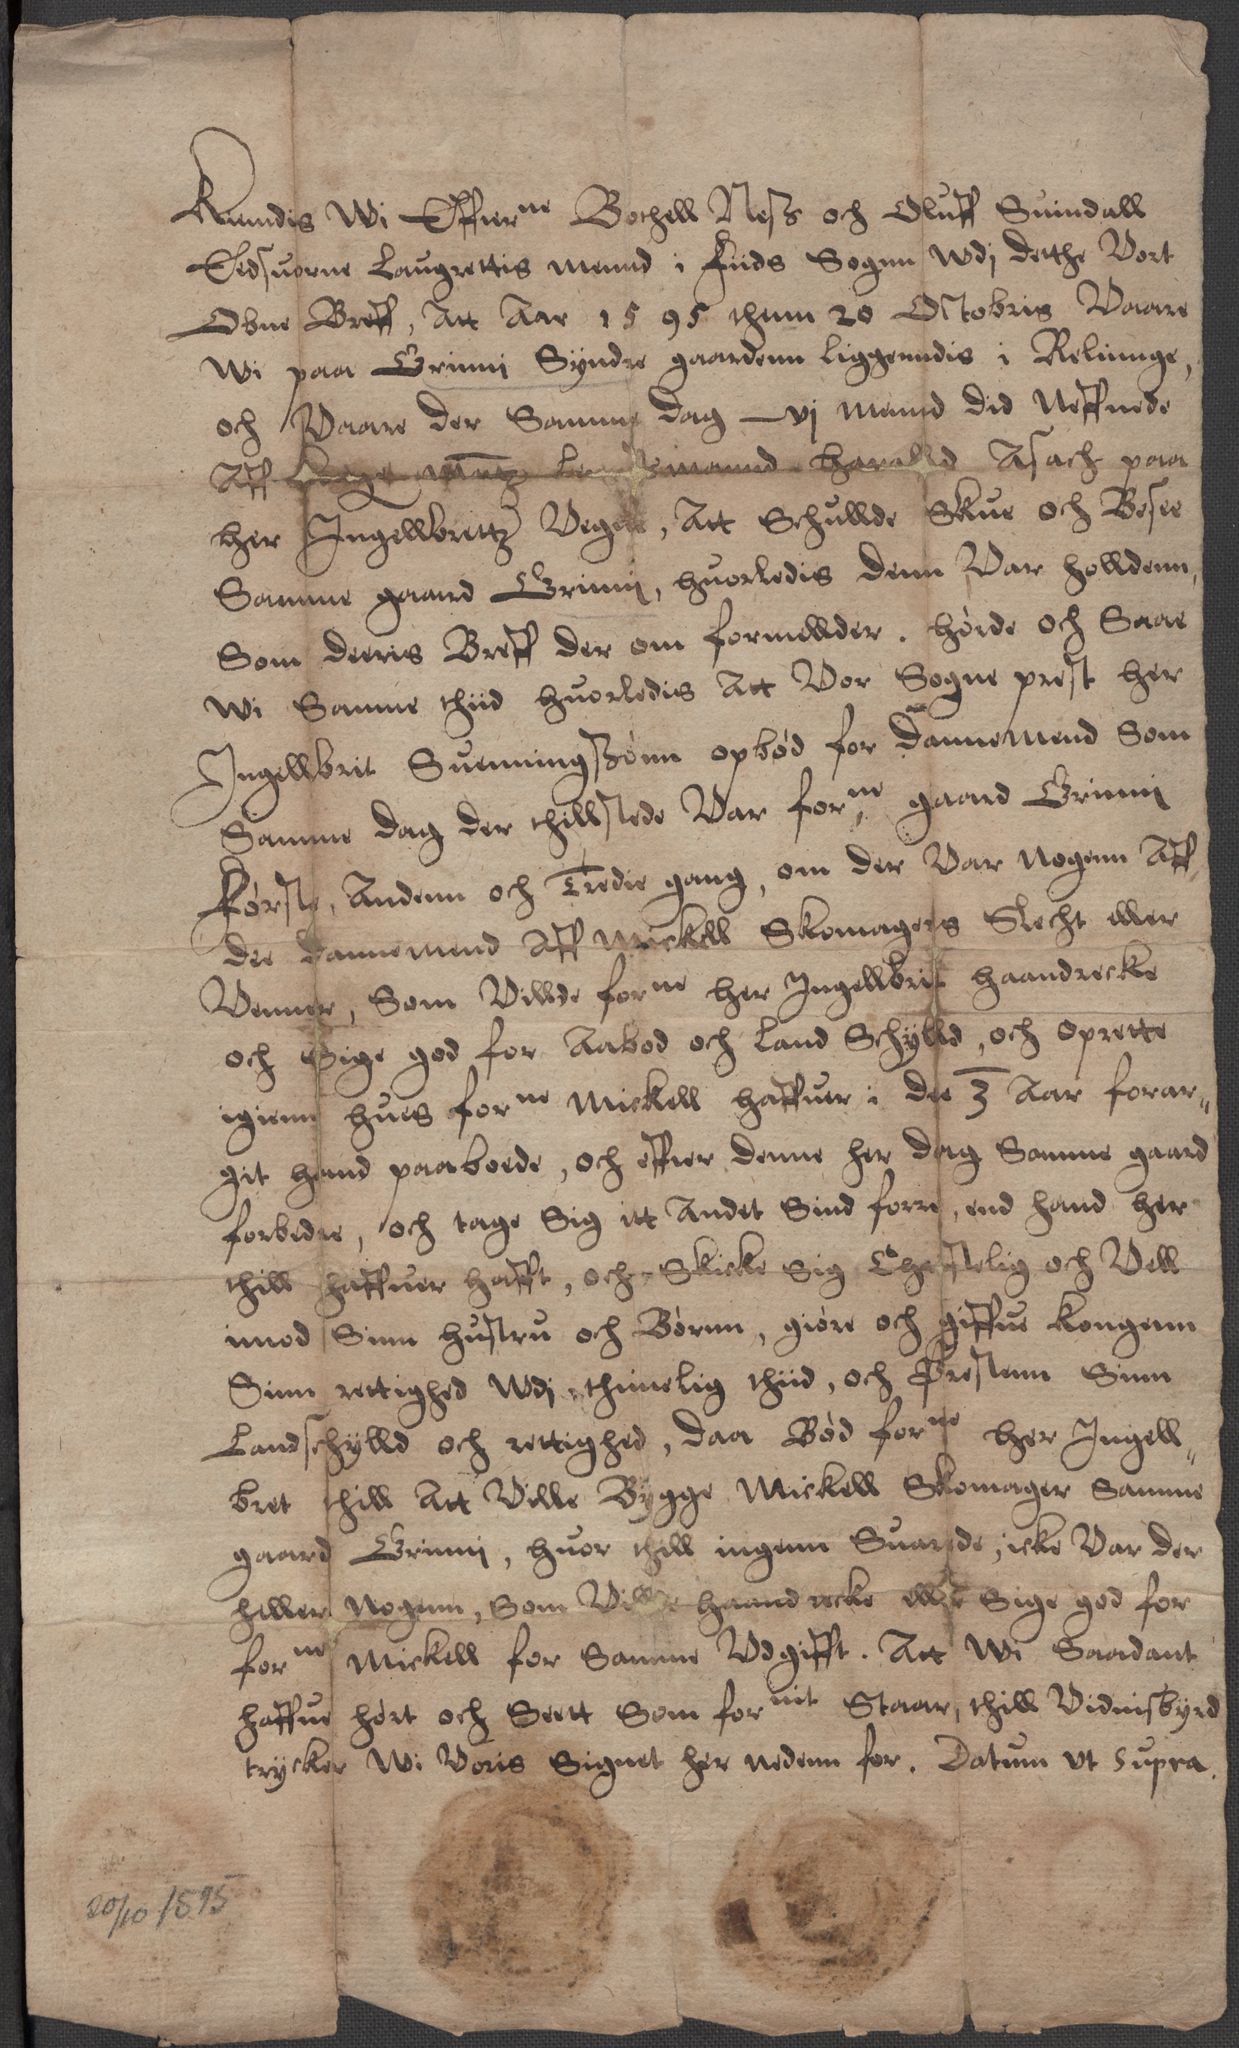 Kiendis Wi Effterne Bothell Neß och Oluff Suindall
Eedsuorne Laugrettis mennd i Eiids Sognn Wdj dethe Vort
Obne Breff, Att Aar 1595 thnn 20 Octobris Vaare
Wi paa Grimj Syndre gaardenn liggenndis i Reliinge,
och Vaare der Samme dag vj mennd did Neffnede
Aff lennsmannd Haralld Asach paa
her Ingellbrettz Vegne, Att Schullde Skue och Besee
Samme gaard Grimj, huorledis denn Var holldenn,
Som deeris Breff der om formellder. hørde och Saae
Wi Samme thiid huorledis Att Vor Sogne prest her
Ingellbrit Suenningßønn opbød for dannemend Som
Samme dag der thillstede Var forne gaard Grimj
Første, Andenn och Tredie gang, om der Var nogenn Aff
dee dannemend Aff Mickell Skomagers Slecht eller
Venner, Som Villde forne her Ingellbrit haandrecke
och Sige god for Aabod och Land Schylld, och oprette
igienn hues forne Mickell haffuer i dee 3 Aar forar„
git hand paaboede, och effter denne her dag Samme gaard
forbedre, och tage Sig itt Andet Sind forre, end hand her
thill haffuer hafft, och Skicke Sig Christelig och Vell
imod Sinn hustru och Børnn, giøre och giffue Kongenn
Sinn rettighed Wdj thimelig thiid, och Prestenn Sinn
Landschylld och rettighed, daa Bød forne her Ingell„
bret thill Att Ville Bygge Mickell Skomager Samme
gaard Grimj, huor thill ingenn Suarede, icke Var der
heller Nogenn, Som Villde haandrecke eller Sige god for
forne Mickell for Samme Vdgifft. Att Wi Saadant
haffue hørt och Seett Som fornit Staar, thill Vidnisbyrd
trycker Wi Voris Signet her nedenn for. Datum vt Supra.
20/10 1595